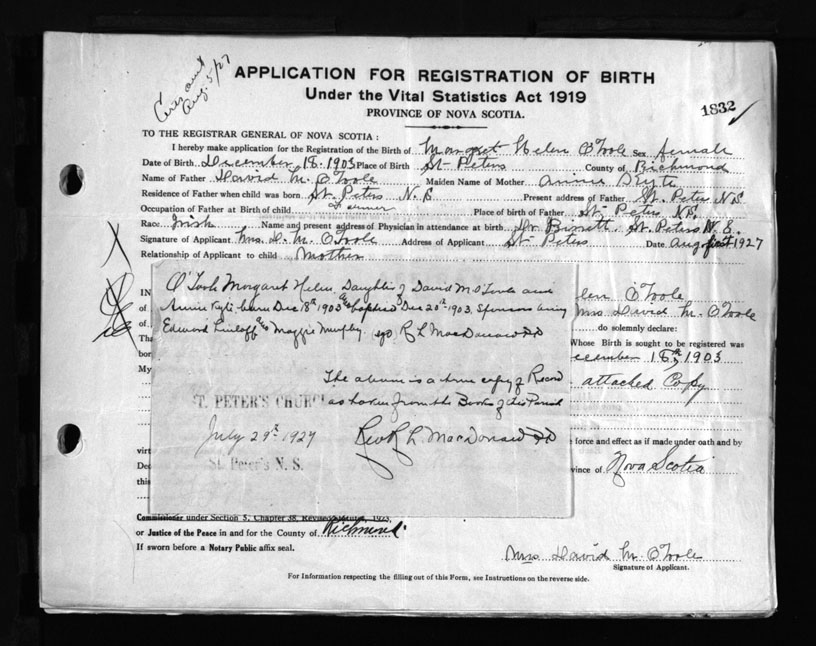 Aug. 5/27
APPLICATION FOR REGISTRATION OF BIRTH
Under the Vital Statistics Act 1919
PROVINCE OF NOVA SCOTIA.
1832
TO THE REGISTRAR GENERAL OF NOVA SCOTIA :
I hereby make application for the Registration of the Birth of Margaret Helen O'Toole Sex female
Date of Birth December 18. 1903 Place of Birth St Peters County of Richmond
Name of Father David M. O'Toole Maiden Name of Mother Annie Kyte
Residence of Father when child was born St. Peters N. S. Present address of Father St. Peters N.S.
Occupation of Father at Birth of child Farmer Place of birth of Father St. Peters N.S.
Race Irish Name and present address of Physician in attendance at birth Dr Bissett St. Peters N. S.
Signature of Applicant Mrs. D. M. O'Toole Address of Applicant St Peters Date Aug first 1927
Relationship of Applicant to child Mother
O'Toole Margaret Helen, Daughter of David M O'Toole and
Annie Kyte born Dec 18th 1903 baptised Dec 20th 1903. Sponsors being
Edward & Maggie Murphy. R L MacDonald P.P.
The above is a true copy of Record
as taken from the Books of this Parish
ST. PETER'S CHURCH
July 29th 1927 Rev R L. MacDonald P.P.
St. Peter's N. S.
IN
of
of
Tha
bor
My
virt
Dec
this
len O'Toole
Mrs David M. O'Toole
do solemnly declare:
Whose Birth is sought to be registered was
cember 18th, 1903
attached Copy
e force and effect as if made under oath and by
vince of Nova Scotia
Commissioner under Section 5, Chapter 38, Revised 1923,
or Justice of the Peace in and for the County of Richmond
If sworn before a Notary Public affix seal.
Mrs David M. O'Toole
Signature of Applicant.
For Information respecting the filling out of this Form, see Instructions on the reverse side.